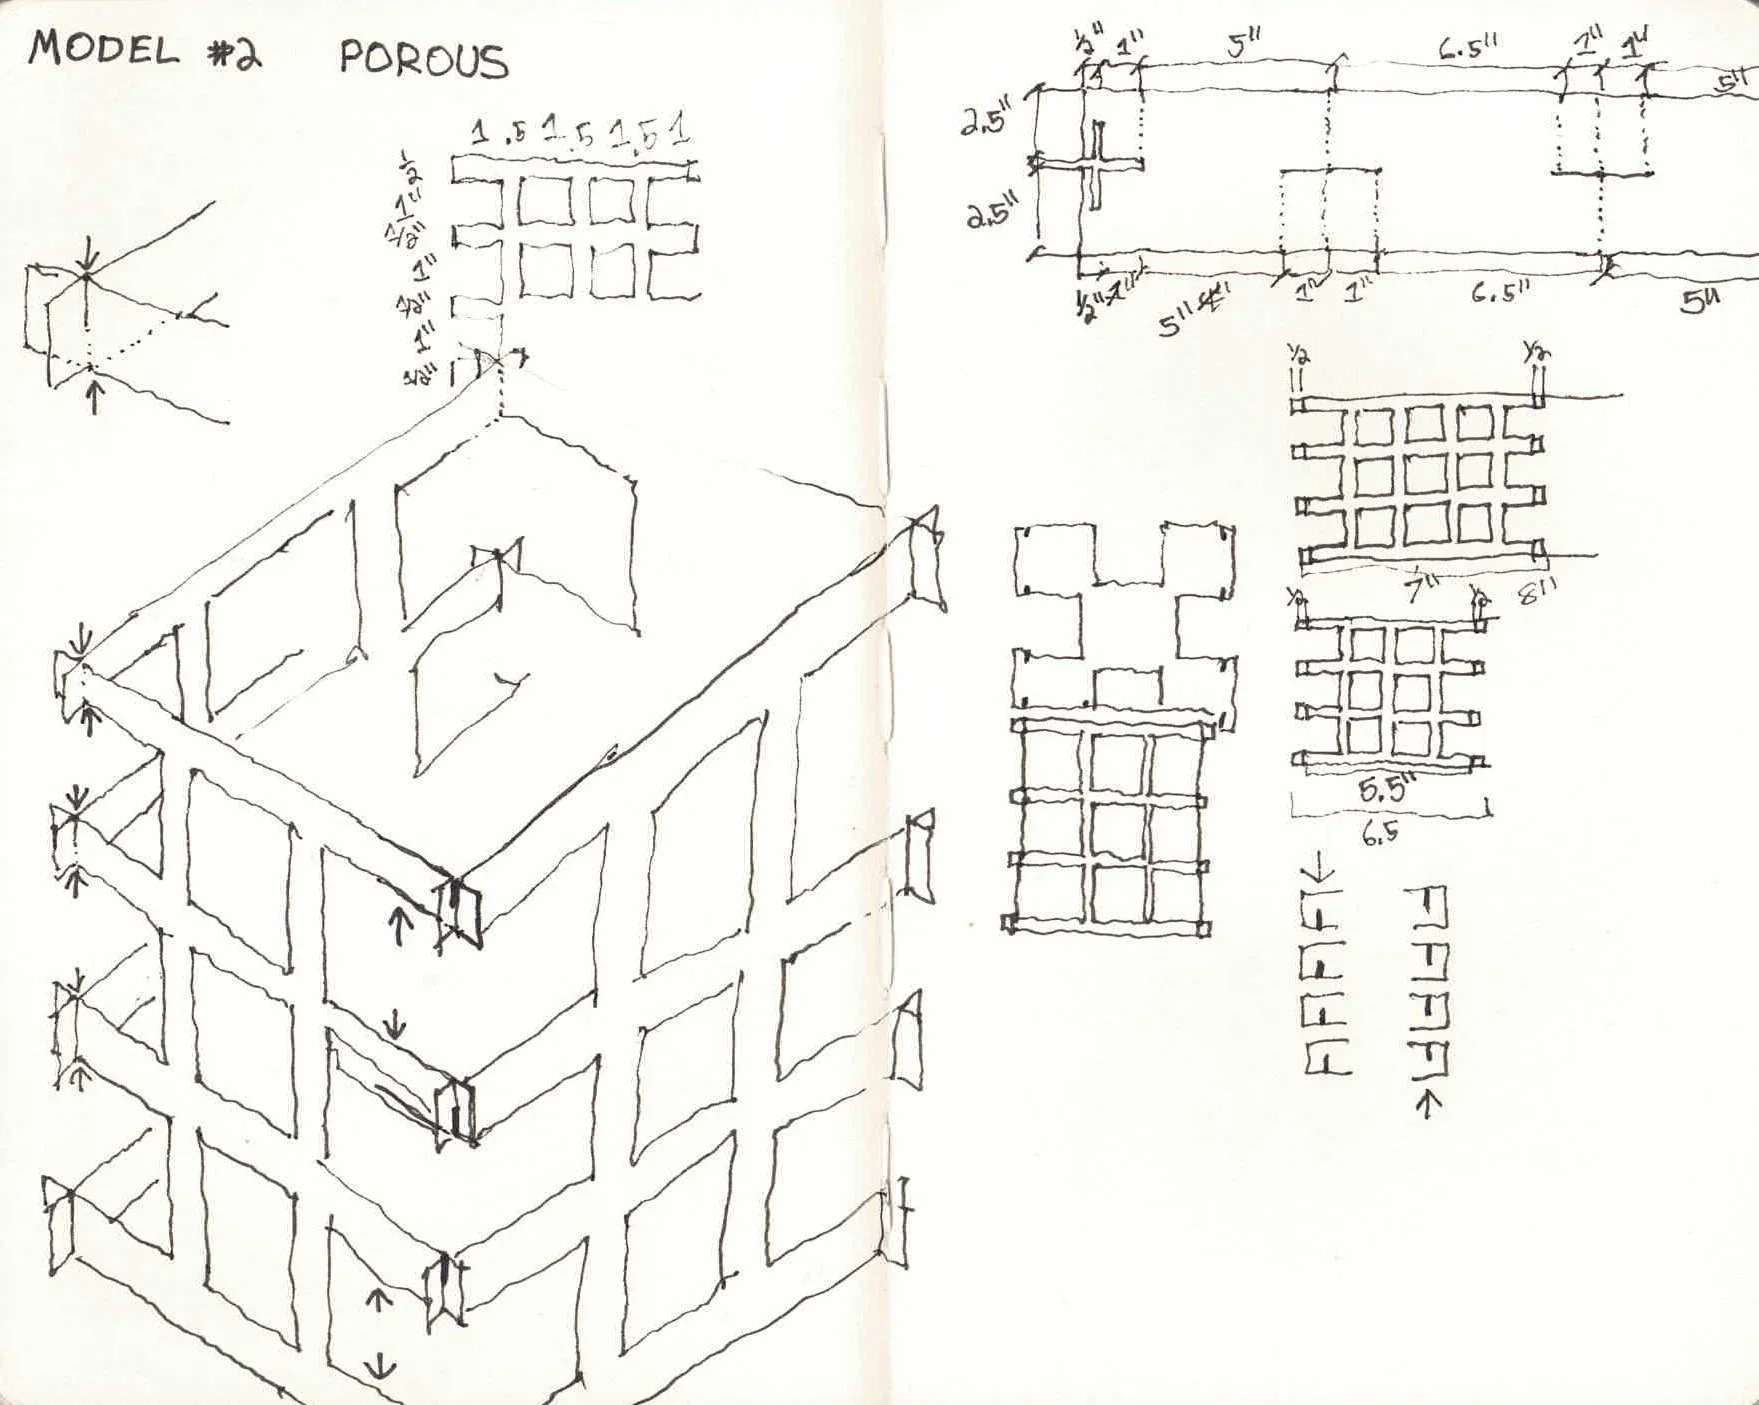 MODEL #2 POROUS
1 .5 1 .5 1 .5 1
1/2
1"
1/2"
1"
1/2"
1"
1/2"
1/2" 1" 5" 6.5" 1" 1" 5"
2.5"
2.5"
1/2" 1" 5" 1" 1" 6.5" 5"
1/2 1/2
7" 8"
1/2 1/2
5.5"
6.5